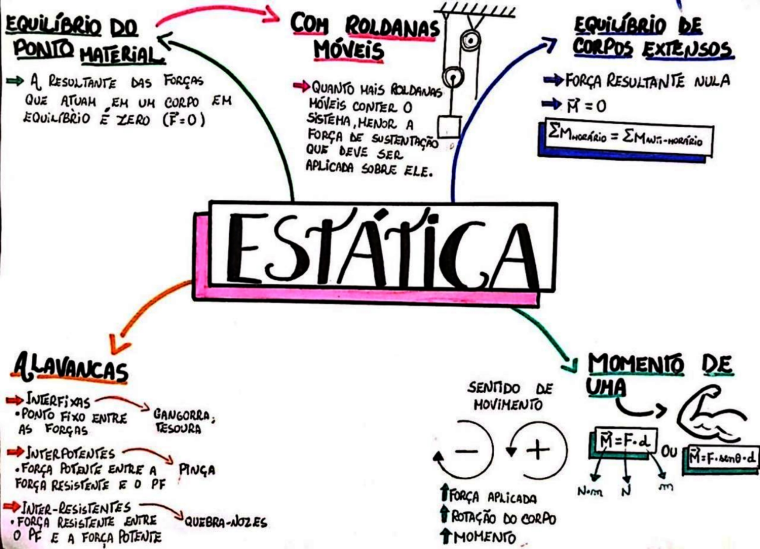 EQUILÍBRIO DO
PONTO MATERIAL
→ A RESULTANTE DAS FORÇAS
QUE ATUAM EM UM CORPO EM
EQUILÍBRIO É ZERO (F⃗=0)
COM ROLDANAS
MÓVEIS
→ QUANTO MAIS ROLDANAS
MÓVEIS CONTER O
SISTEMA, MENOR A
FORÇA DE SUSTENTAÇÃO
QUE DEVE SER
APLICADA SOBRE ELE.
EQUILÍBRIO DE
CORPOS EXTENSOS
→ FORÇA RESULTANTE NULA
→ M⃗ = 0
ΣM HORÁRIO = ΣM ANTI-HORÁRIO
ESTÁTICA
ALAVANCAS
→ INTERFIXAS
• PONTO FIXO ENTRE
AS FORÇAS
GANGORRA,
TESOURA
→ INTERPOTENTES
• FORÇA POTENTE ENTRE A
FORÇA RESISTENTE E O PF
PINÇA
→ INTER-RESISTENTES
• FORÇA RESISTENTE ENTRE
O PF E A FORÇA POTENTE
QUEBRA-NOZES
SENTIDO DE
MOVIMENTO
− +
↑ FORÇA APLICADA
↑ ROTAÇÃO DO CORPO
↑ MOMENTO
MOMENTO DE
UMA
M⃗ = F · d OU M⃗ = F · senθ · d
N·m N m